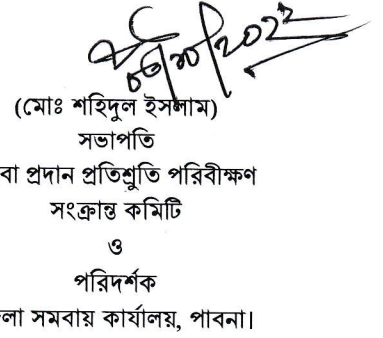 ০৩/১০/২০২২
(মোঃ শহিদুল ইসলাম)
সভাপতি
বা প্রদান প্রতিশ্রুতি পরিবীক্ষণ
সংক্রান্ত কমিটি
ও
পরিদর্শক
লা সমবায় কার্যালয়, পাবনা।